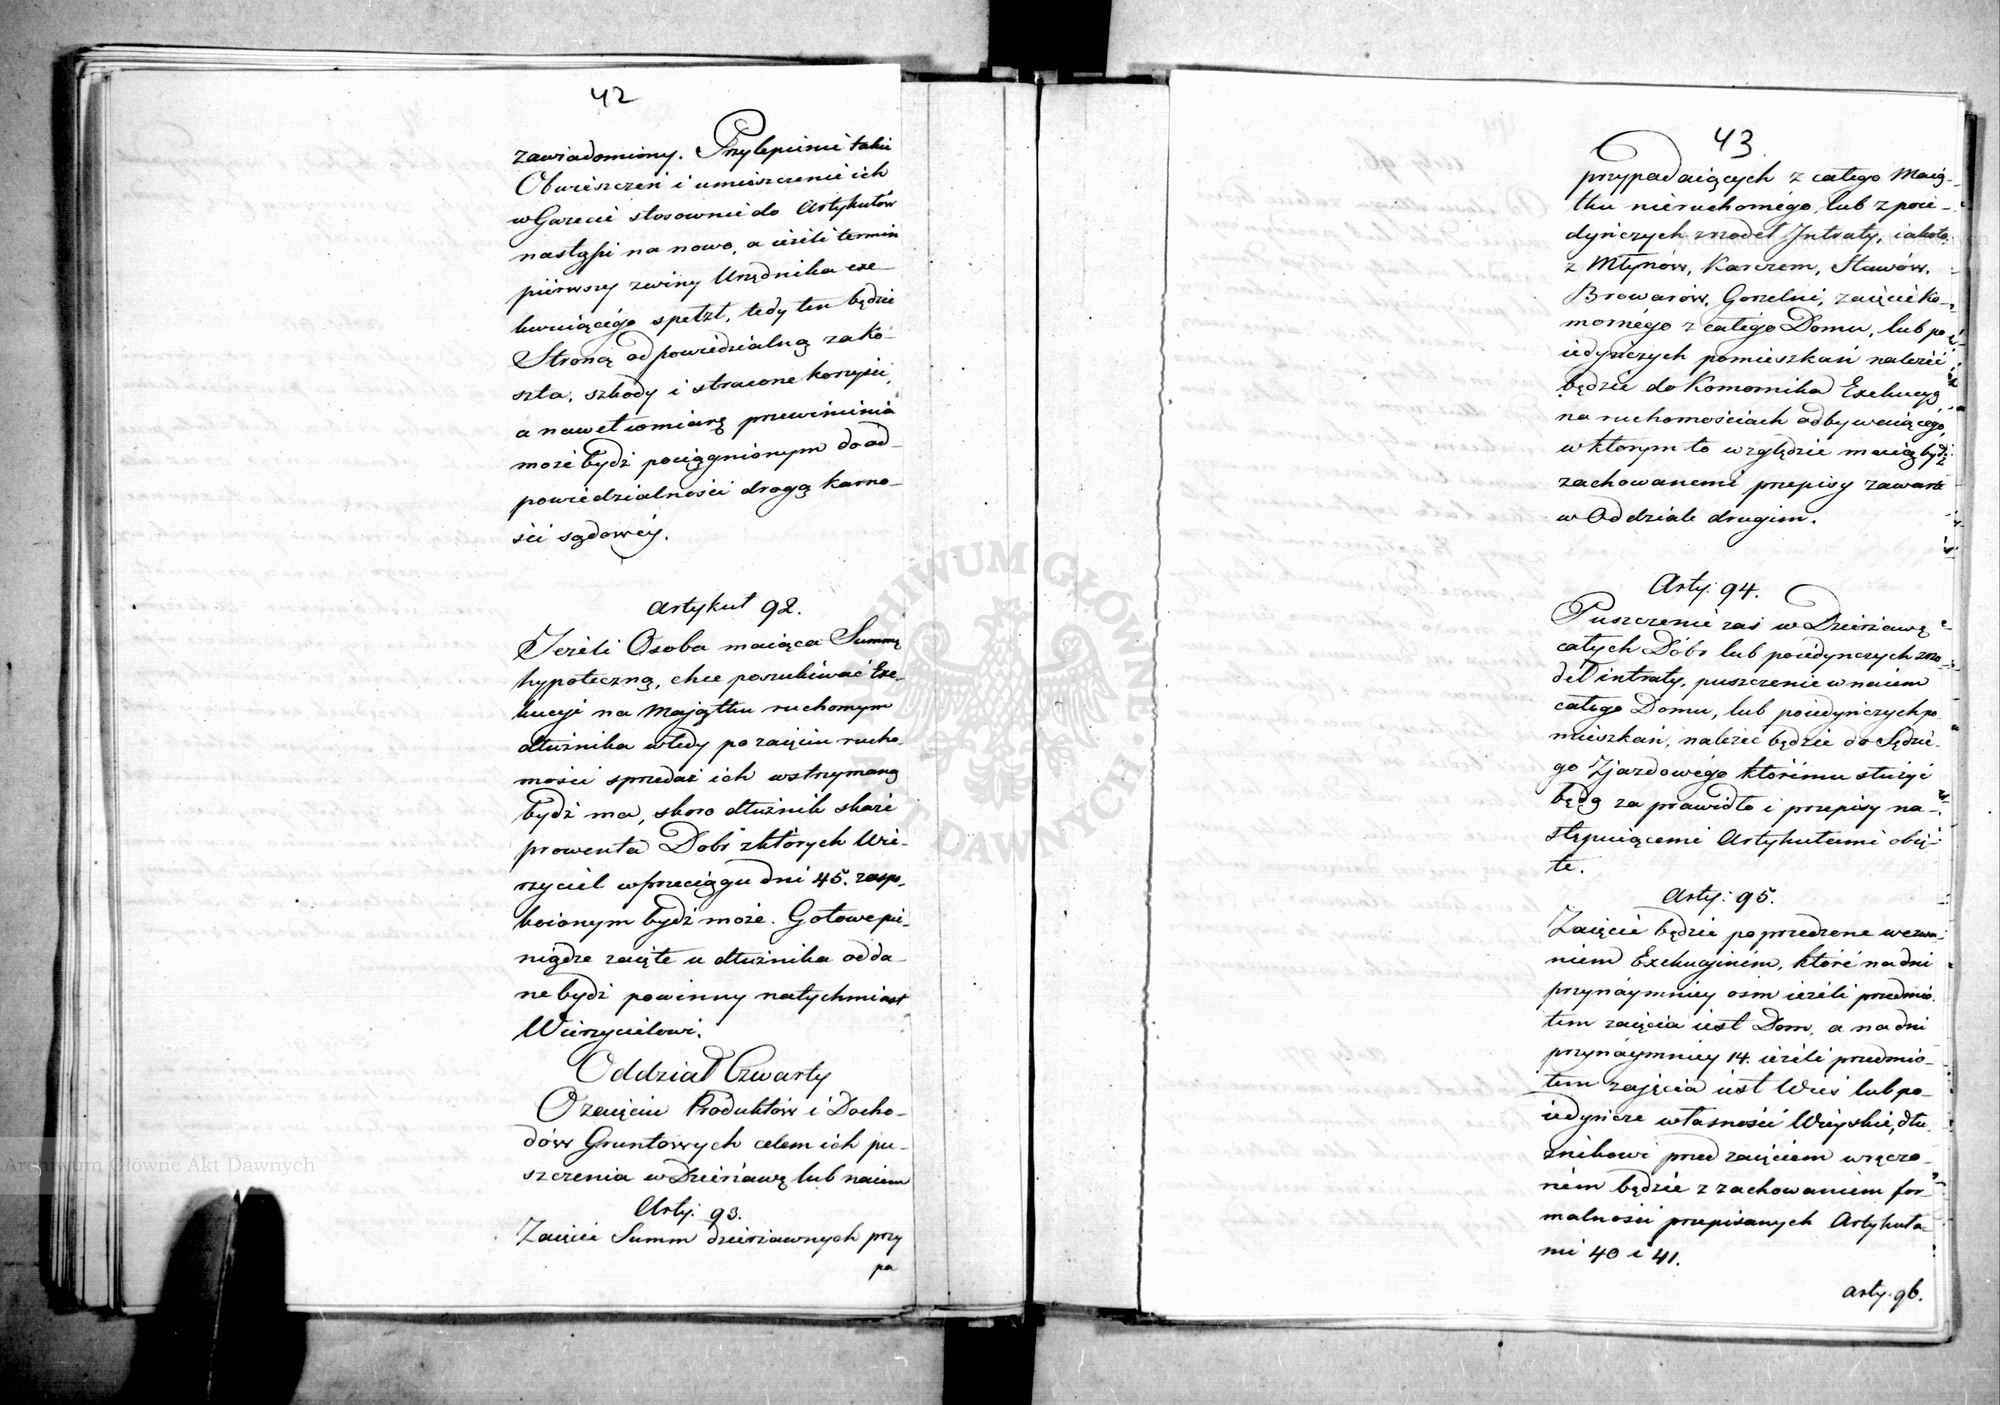 42
zawiadomiony. Przylepienie takie
Obwieszczeń i umieszczenie ich
w Gazecie stosownie do Artykułów
nastąpi na nowo, a ieżeli termin
pierwszy z winy Urzędnika exe-
kwuiącego spełzł, tedy ten będzie
Stroną odpowiedzialną za ko-
szta, szkody i stracone korzyści,
a nawet w miarę przewinienia
może bydź pociągnionym do od-
powiedzialności drogą karno-
ści sądowéy.
Artykuł 92.
Ieżeli Osoba maiąca Summę
hypoteczną, chce poszukiwać Exe-
kucyi na Maiątku ruchomym
dłużnika wtedy po zaięciu rucho-
mości sprzedaż ich wstrzymaną
bydź ma, skoro dłużnik skaże
prowenta Dóbr z których Wie-
rzyciel w przeciągu dni 45. zaspo-
koionym bydź może. Gotowe pie-
niądze zaięte u dłużnika odda-
ne bydź powinny natychmiast
Wierzycielowi.
Oddział Czwarty
O zaięciu Produktów i Docho-
dów Gruntowych celem ich pu-
szczenia w Dzierżawę lub naiem
Arty: 93.
Zaięcie Summ dzierżawnych przy
pa
43
przypadaiących z całego Maią-
tku nieruchomego, lub z poie-
dyńczych źrzodeł Intraty, iakoto
z Młynów, Karczem, Stawów,
Browarów, Gorzelni, zaięcie ko-
mornego z całego Domu, lub po
iedyńczych pomieszkań należeć
będzie do Komornika Exekucyą
na ruchomościach odbywaiącego,
w którym to względzie maią bydź
zachowanemi przepisy zawarte
w Oddziale drugim.
Arty: 94.
Puszczenie zaś w Dzierżawę
całych Dóbr lub poiedynczych źrzo-
deł intraty, puszczenie w naiem
całego Domu, lub poiedyńczych po
mieszkań, należeć będzie do Sędzie-
go Zjazdowego któremu służyć
będą za prawidło i przepisy na-
stępuiącemi Artykułami obię-
te.
Arty: 95.
Zaięcie będzie poprzedzone wezwa-
niem Exekucyinem, które na dni
przynaymniey osm ieżeli przedmio-
tem zaięcia iest Dom, a na dni
przynaymniey 14. ieżeli przedmio-
tem zajęcia iest Wieś lub po-
iedyńcze własności Wieyskie, dłu-
żnikowi przed zaięciem wręczo-
nem będzie z zachowaniem for-
malności przepisanych Artykuła-
mi 40 i 41.
arty. 96.
Archiwum Główne Akt Dawnych
Archiwum Główne Akt Dawnych
ARCHIWUM GŁÓWNE AKT DAWNYCH